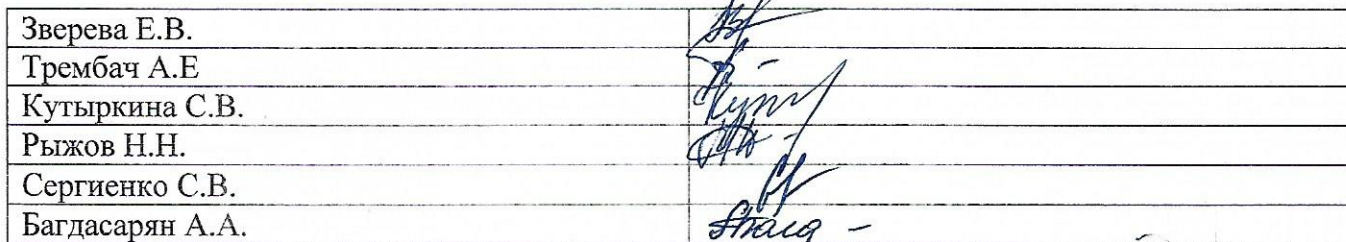 Зверева Е.В.
Трембач А.Е
Кутыркина С.В.
Рыжов Н.Н.
Сергиенко С.В.
Багдасарян А.А.